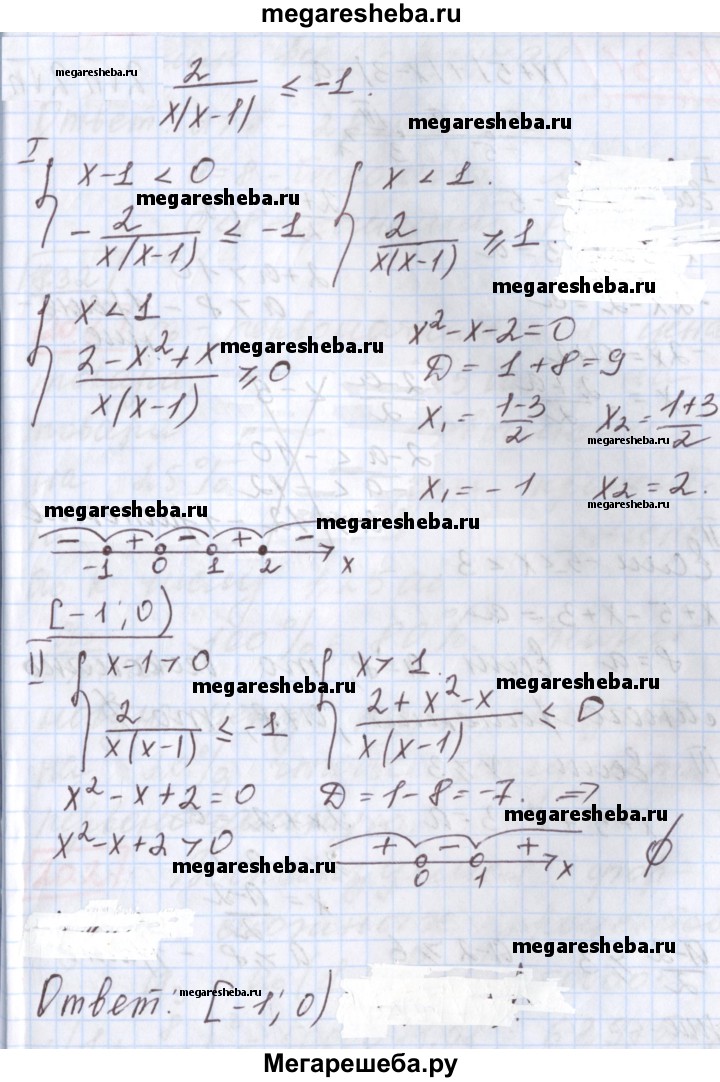 megaresheba.ru
megaresheba.ru
2/(x|x-1|) ≤ -1.
megaresheba.ru
I
{ x-1 < 0
-2/(x(x-1)) ≤ -1
megaresheba.ru
{ x < 1.
2/(x(x-1)) ≥ 1.
megaresheba.ru
{ x < 1
(2-x²+x)/(x(x-1)) ≥ 0
megaresheba.ru
megaresheba.ru
x²-x-2=0
D = 1+8=9
x₁ = (1-3)/2 x₂ = (1+3)/2
megaresheba.ru
x₁ = -1 x₂ = 2.
megaresheba.ru
megaresheba.ru
megaresheba.ru
- + - + -
-1 0 1 2 x
[-1; 0)
II) { x-1 > 0
2/(x(x-1)) ≤ -1
megaresheba.ru
{ x > 1.
(2+x²-x)/(x(x-1)) ≤ 0
megaresheba.ru
x²-x+2=0 D = 1-8=-7. ⇒
megaresheba.ru
x²-x+2>0
megaresheba.ru
+ - +
0 1 x
∅
megaresheba.ru
Ответ: [-1; 0)
megaresheba.ru
Мегарешеба.ру